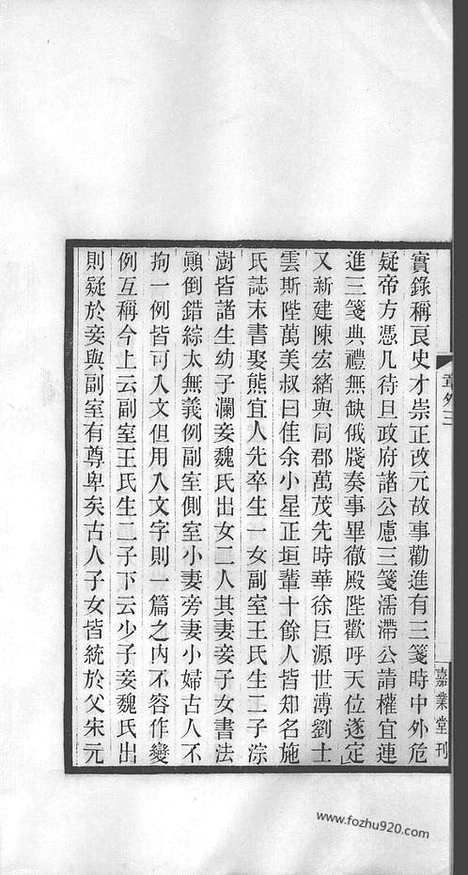 實錄稱良史才崇正改元故事勸進有三箋時中外危
疑帝方憑几待旦政府諸公慮三箋濡滯公請權宜連
進三箋典禮無缺俄牋奏事畢徹殿陛歡呼天位遂定
又新建陳宏緒與同郡萬茂先時華徐巨源世溥劉士
雲斯陛萬美叔曰佳余小星正垣輩十餘人皆知名施
氏誌末書娶熊宜人先卒生一女副室王氏生二子淙
澍皆諸生幼子瀾妾魏氏出女二人其妻妾子女書法
顚倒錯綜太無義例副室側室小妻旁妻小婦古人不
拘一例皆可入文但用入文字則一篇之內不容作變
例互稱今上云副室王氏生二子下云少子妾魏氏出
則疑於妾與副室有尊卑矣古人子女皆統於父宋元
章外三
嘉業堂刊
www.fozhu920.com